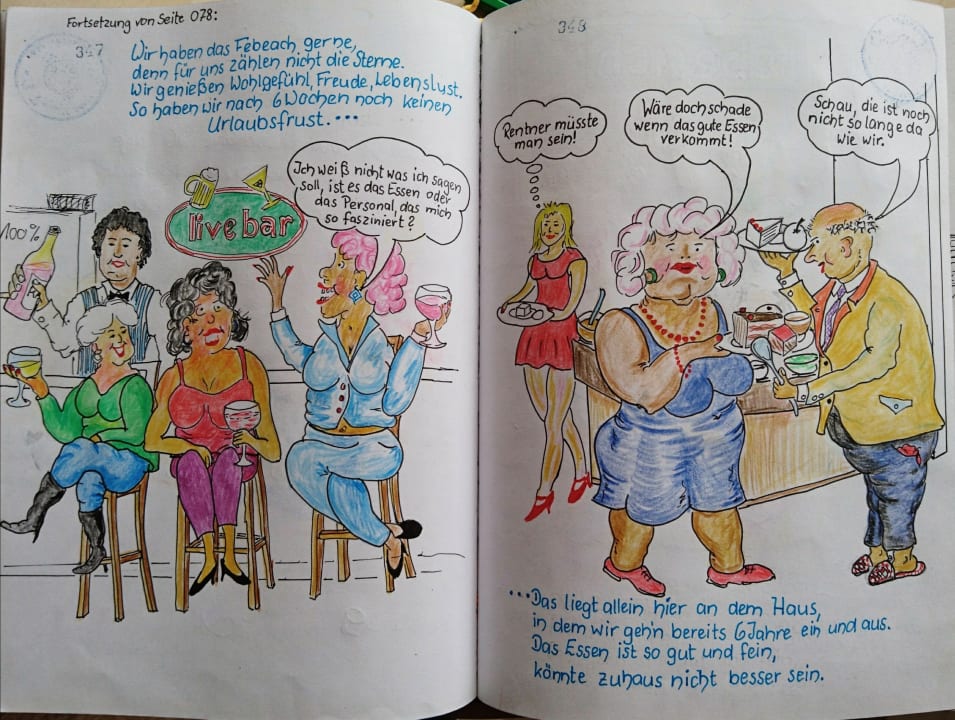 Fortsetzung von Seite 078:
347
Wir haben das Febeach gerne,
denn für uns zählen nicht die Sterne.
Wir genießen Wohlgefühl, Freude, Lebenslust.
So haben wir nach 6 Wochen noch keinen
Urlaubsfrust. ...
Ich weiß nicht was ich sagen
soll, ist es das Essen oder
das Personal, das mich
so fasziniert?
100%
live bar
348
Rentner müsste
man sein!
Wäre doch schade
wenn das gute Essen
verkommt!
Schau, die ist noch
nicht so lange da
wie wir.
...Das liegt allein hier an dem Haus,
in dem wir geh'n bereits 6 Jahre ein und aus.
Das Essen ist so gut und fein,
könnte zuhaus nicht besser sein.